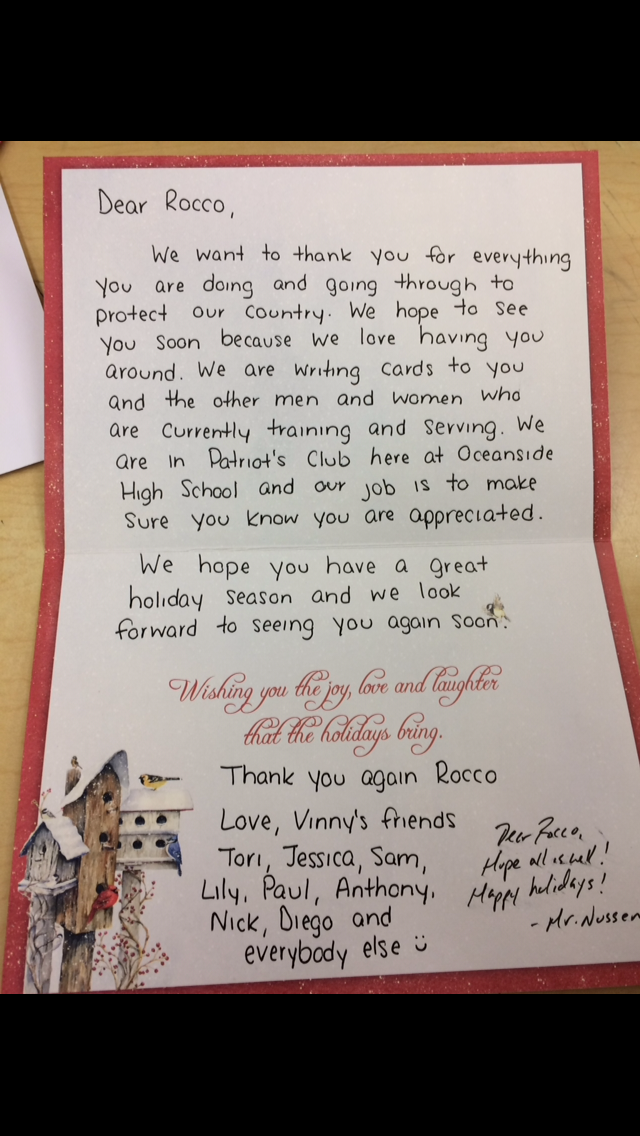 Dear Rocco,
We want to thank you for everything
you are doing and going through to
protect our country. We hope to see
you soon because we love having you
around. We are writing cards to you
and the other men and women who
are currently training and serving. We
are in Patriot's Club here at Oceanside
High School and our job is to make
sure you know you are appreciated.
We hope you have a great
holiday season and we look
forward to seeing you again soon!
Wishing you the joy, love and laughter
that the holidays bring.
Thank you again Rocco
Love, Vinny's friends
Tori, Jessica, Sam,
Lily, Paul, Anthony,
Nick, Diego and
everybody else ü
Dear Rocco,
Hope all is well!
Happy holidays!
- Mr. Nussen